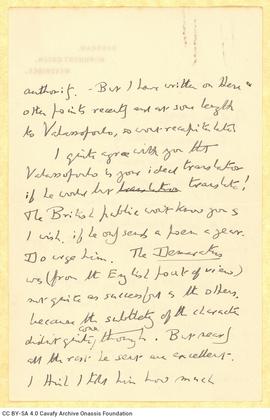 authority. - But I have written on these &
other points recently and at some length
to Valassopoulo, so won't recapitulate.
I quite agree with you that
Valassopoulo is your ideal translator
if he would but translate!
The British public won't know you as
I wish, if he only sends a poem a year.
Do urge him. The Demaratus
was (from the English point of view)
not quite as successful as the others,
because the subtlety of the character
didn't quite come through. But nearly
all the rest he sent are excellent.
I think I told him how much
CC BY-SA 4.0 Cavafy Archive Onassis Foundation